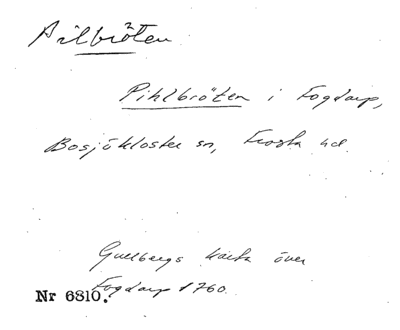 Pilbröten
Pihlbröten i Fogdarp,
Bosjökloster sn, Frosta hd.
Gullbergs karta över
Fogdarp 1760.
Nr 6810.